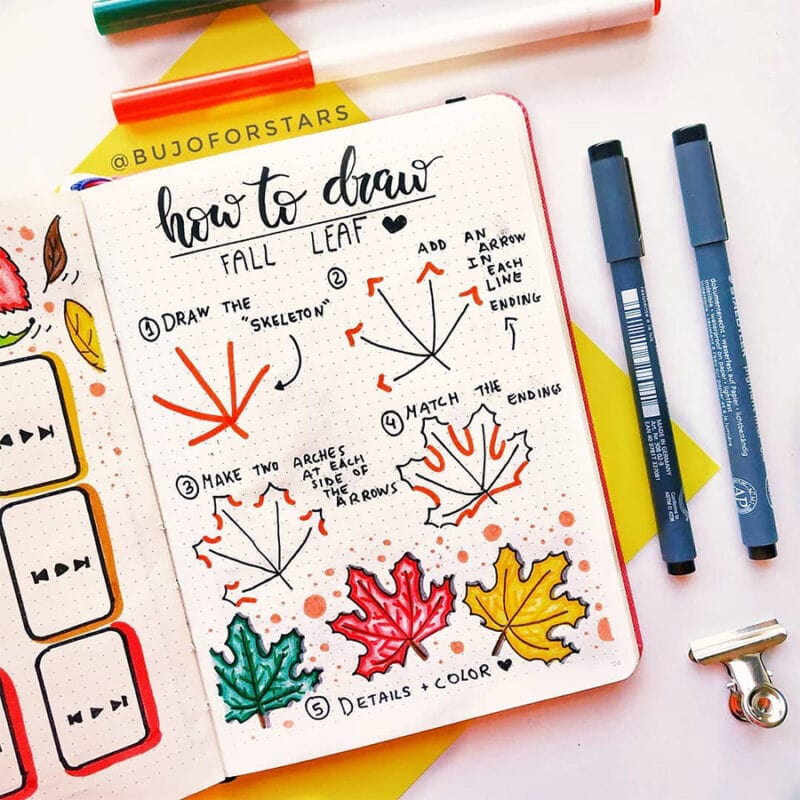 @BUJOFORSTARS
how to draw
FALL LEAF ♥
① DRAW THE
"SKELETON"
②
ADD AN
ARROW
IN
EACH
LINE
ENDING
③ MAKE TWO ARCHES
AT EACH
SIDE OF
THE
ARROWS
④ MATCH THE
ENDINGS
⑤ DETAILS + COLOR ♥
MADE IN GERMANY
STAEDTLER
dokumentenecht • wasserfest auf Papier • lichtbeständig